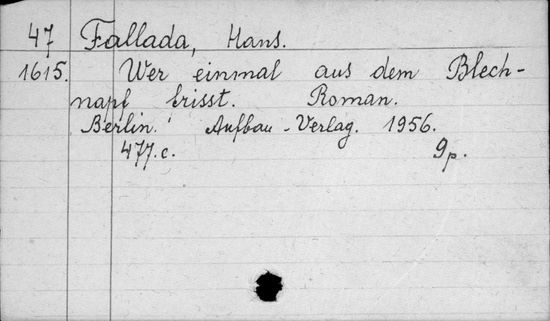 47 Fallada, Hans.
1615. Wer einmal aus dem Blech-
napf frisst. Roman.
Berlin. Aufbau-Verlag. 1956.
477.c. 9p.